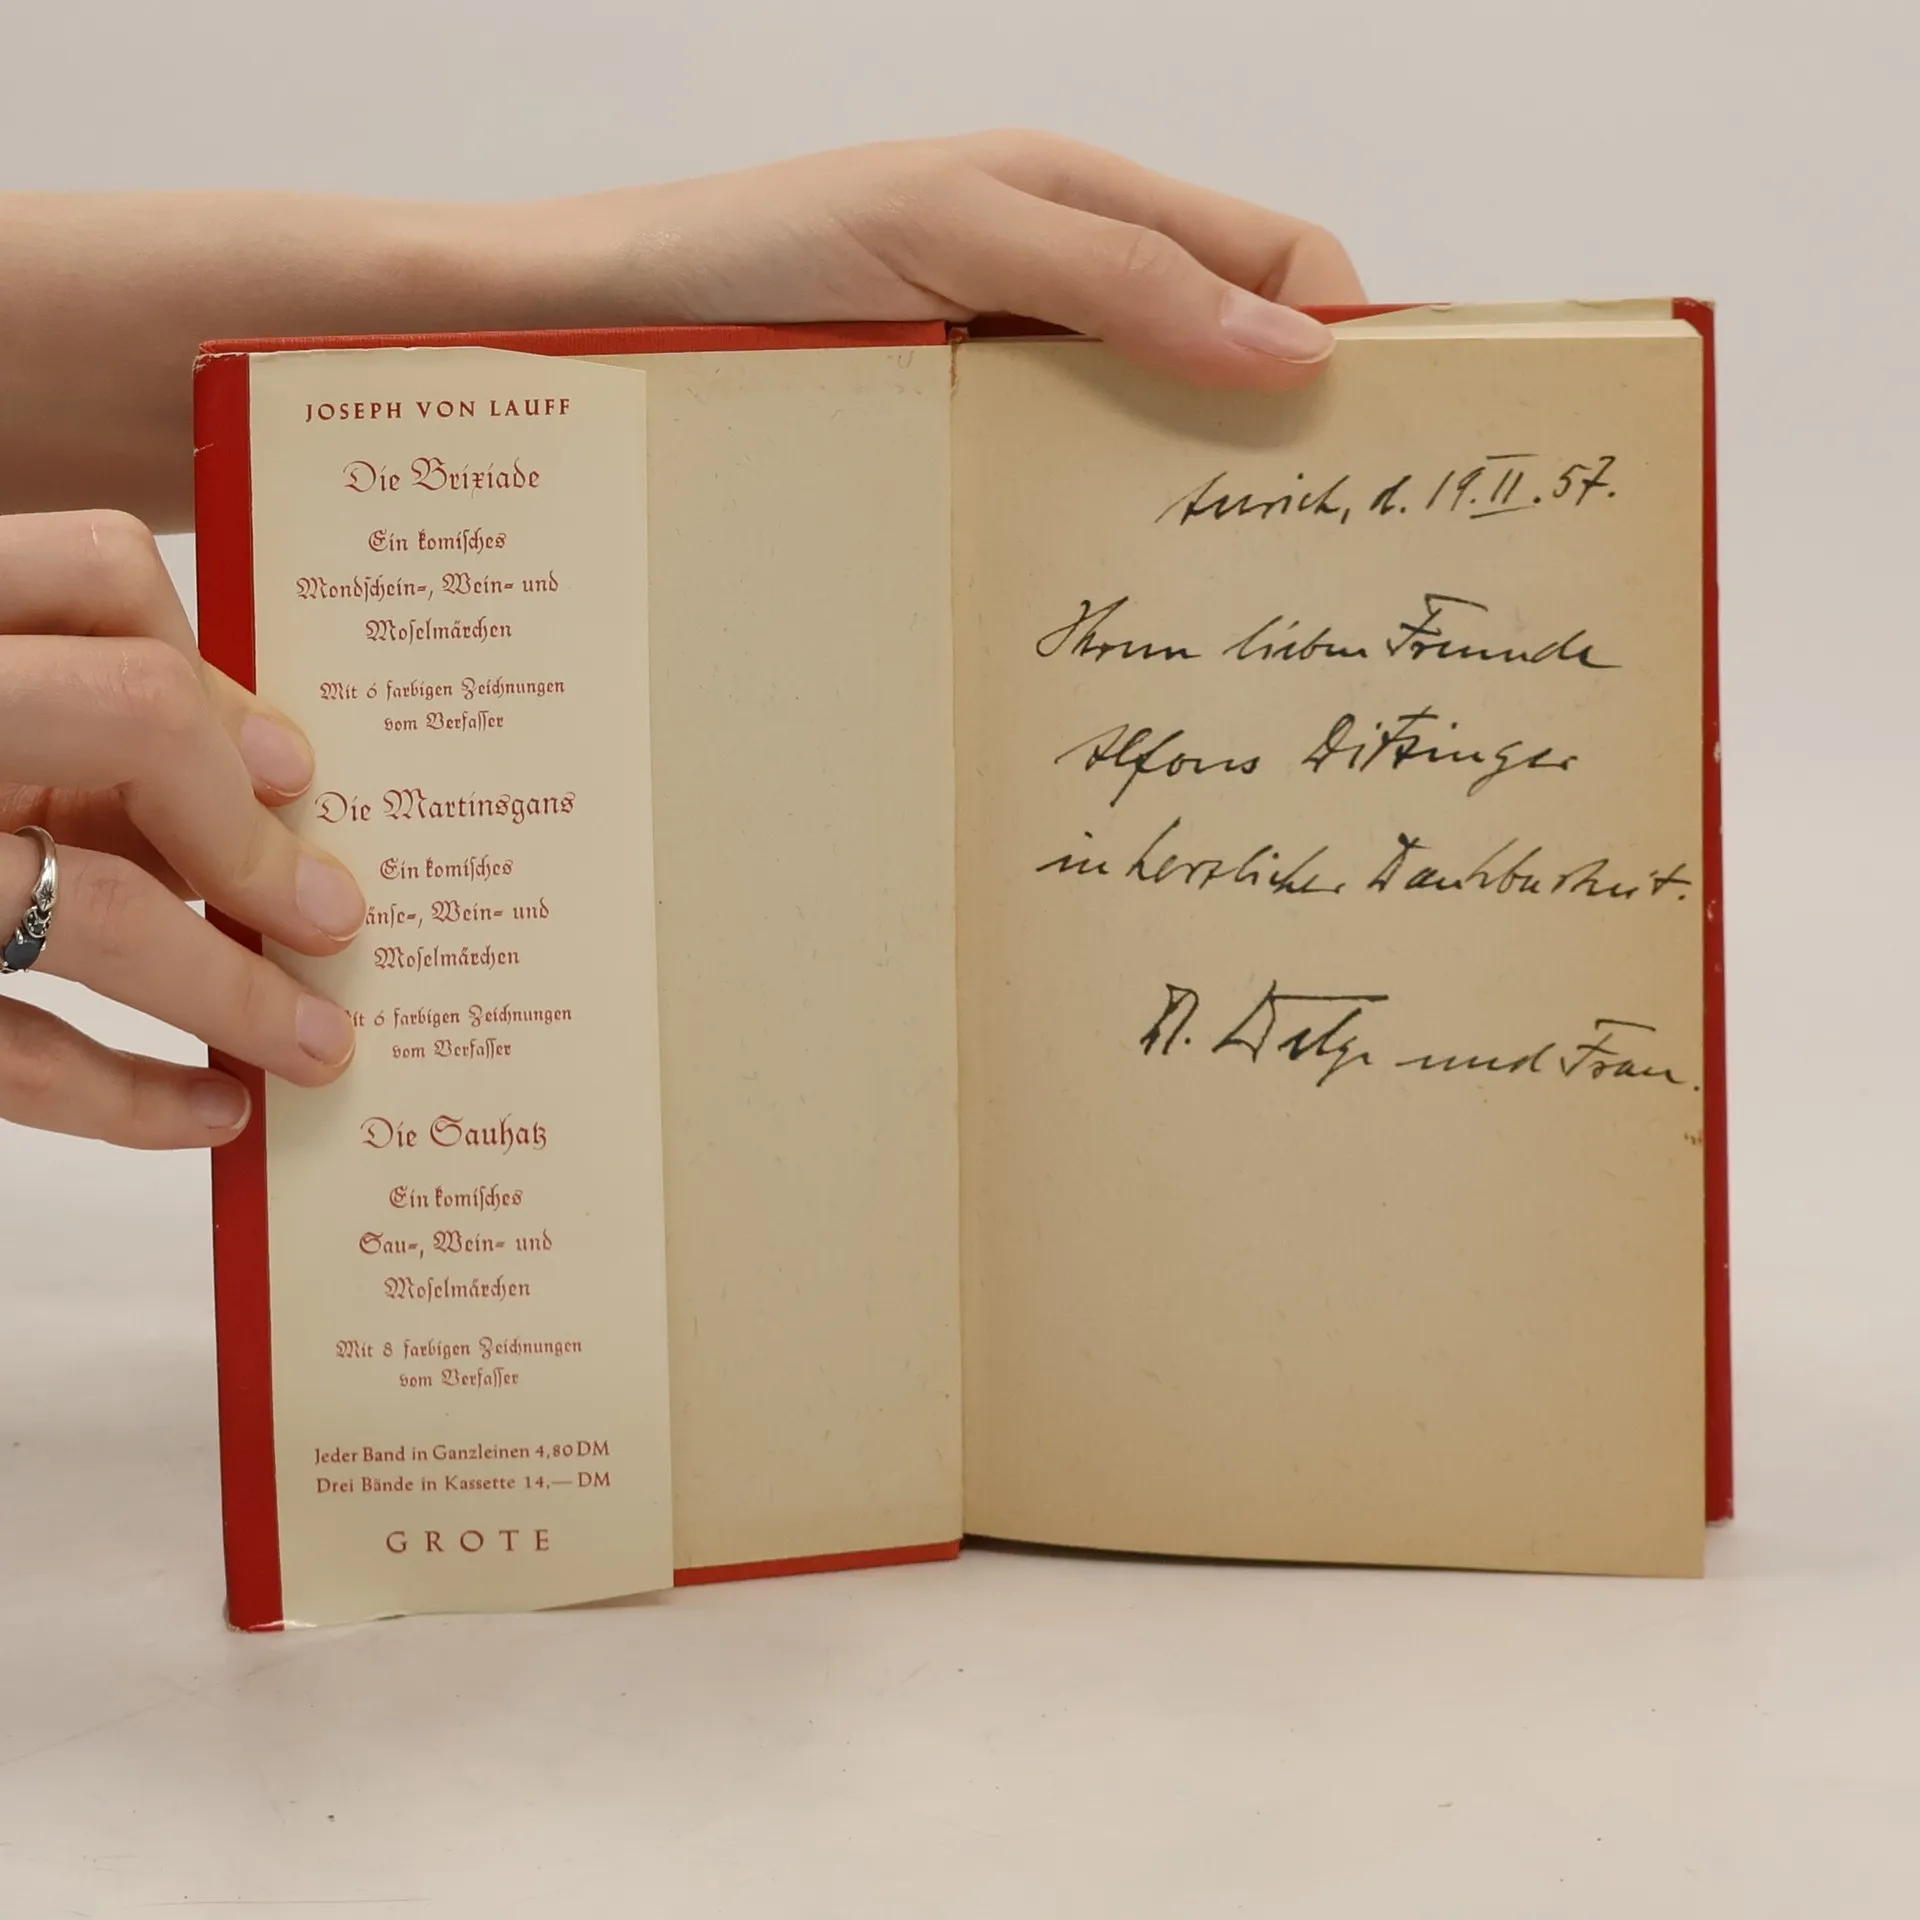 JOSEPH VON LAUFF
Die Brixiade
Ein komisches
Mondschein-, Wein- und
Moselmärchen
Mit 6 farbigen Zeichnungen
vom Verfasser
Die Martinsgans
Ein komisches
änse-, Wein- und
Moselmärchen
it 6 farbigen Zeichnungen
vom Verfasser
Die Sauhatz
Ein komisches
Sau-, Wein- und
Moselmärchen
Mit 8 farbigen Zeichnungen
vom Verfasser
Jeder Band in Ganzleinen 4,80 DM
Drei Bände in Kassette 14,— DM
GROTE
Aurich, d. 19.II.57.
Ihrem lieben Freunde
Alfons Ditzinger
in herzlicher Dankbarkeit.
und Frau.